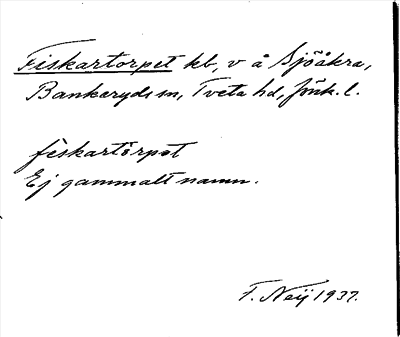 Fiskartorpet kb, v å Sjöåkra,
Bankeryds sn, Tveta hd, Jönk. l.
fèskartörpət
Ej gammalt namn.
F. Neij 1937.